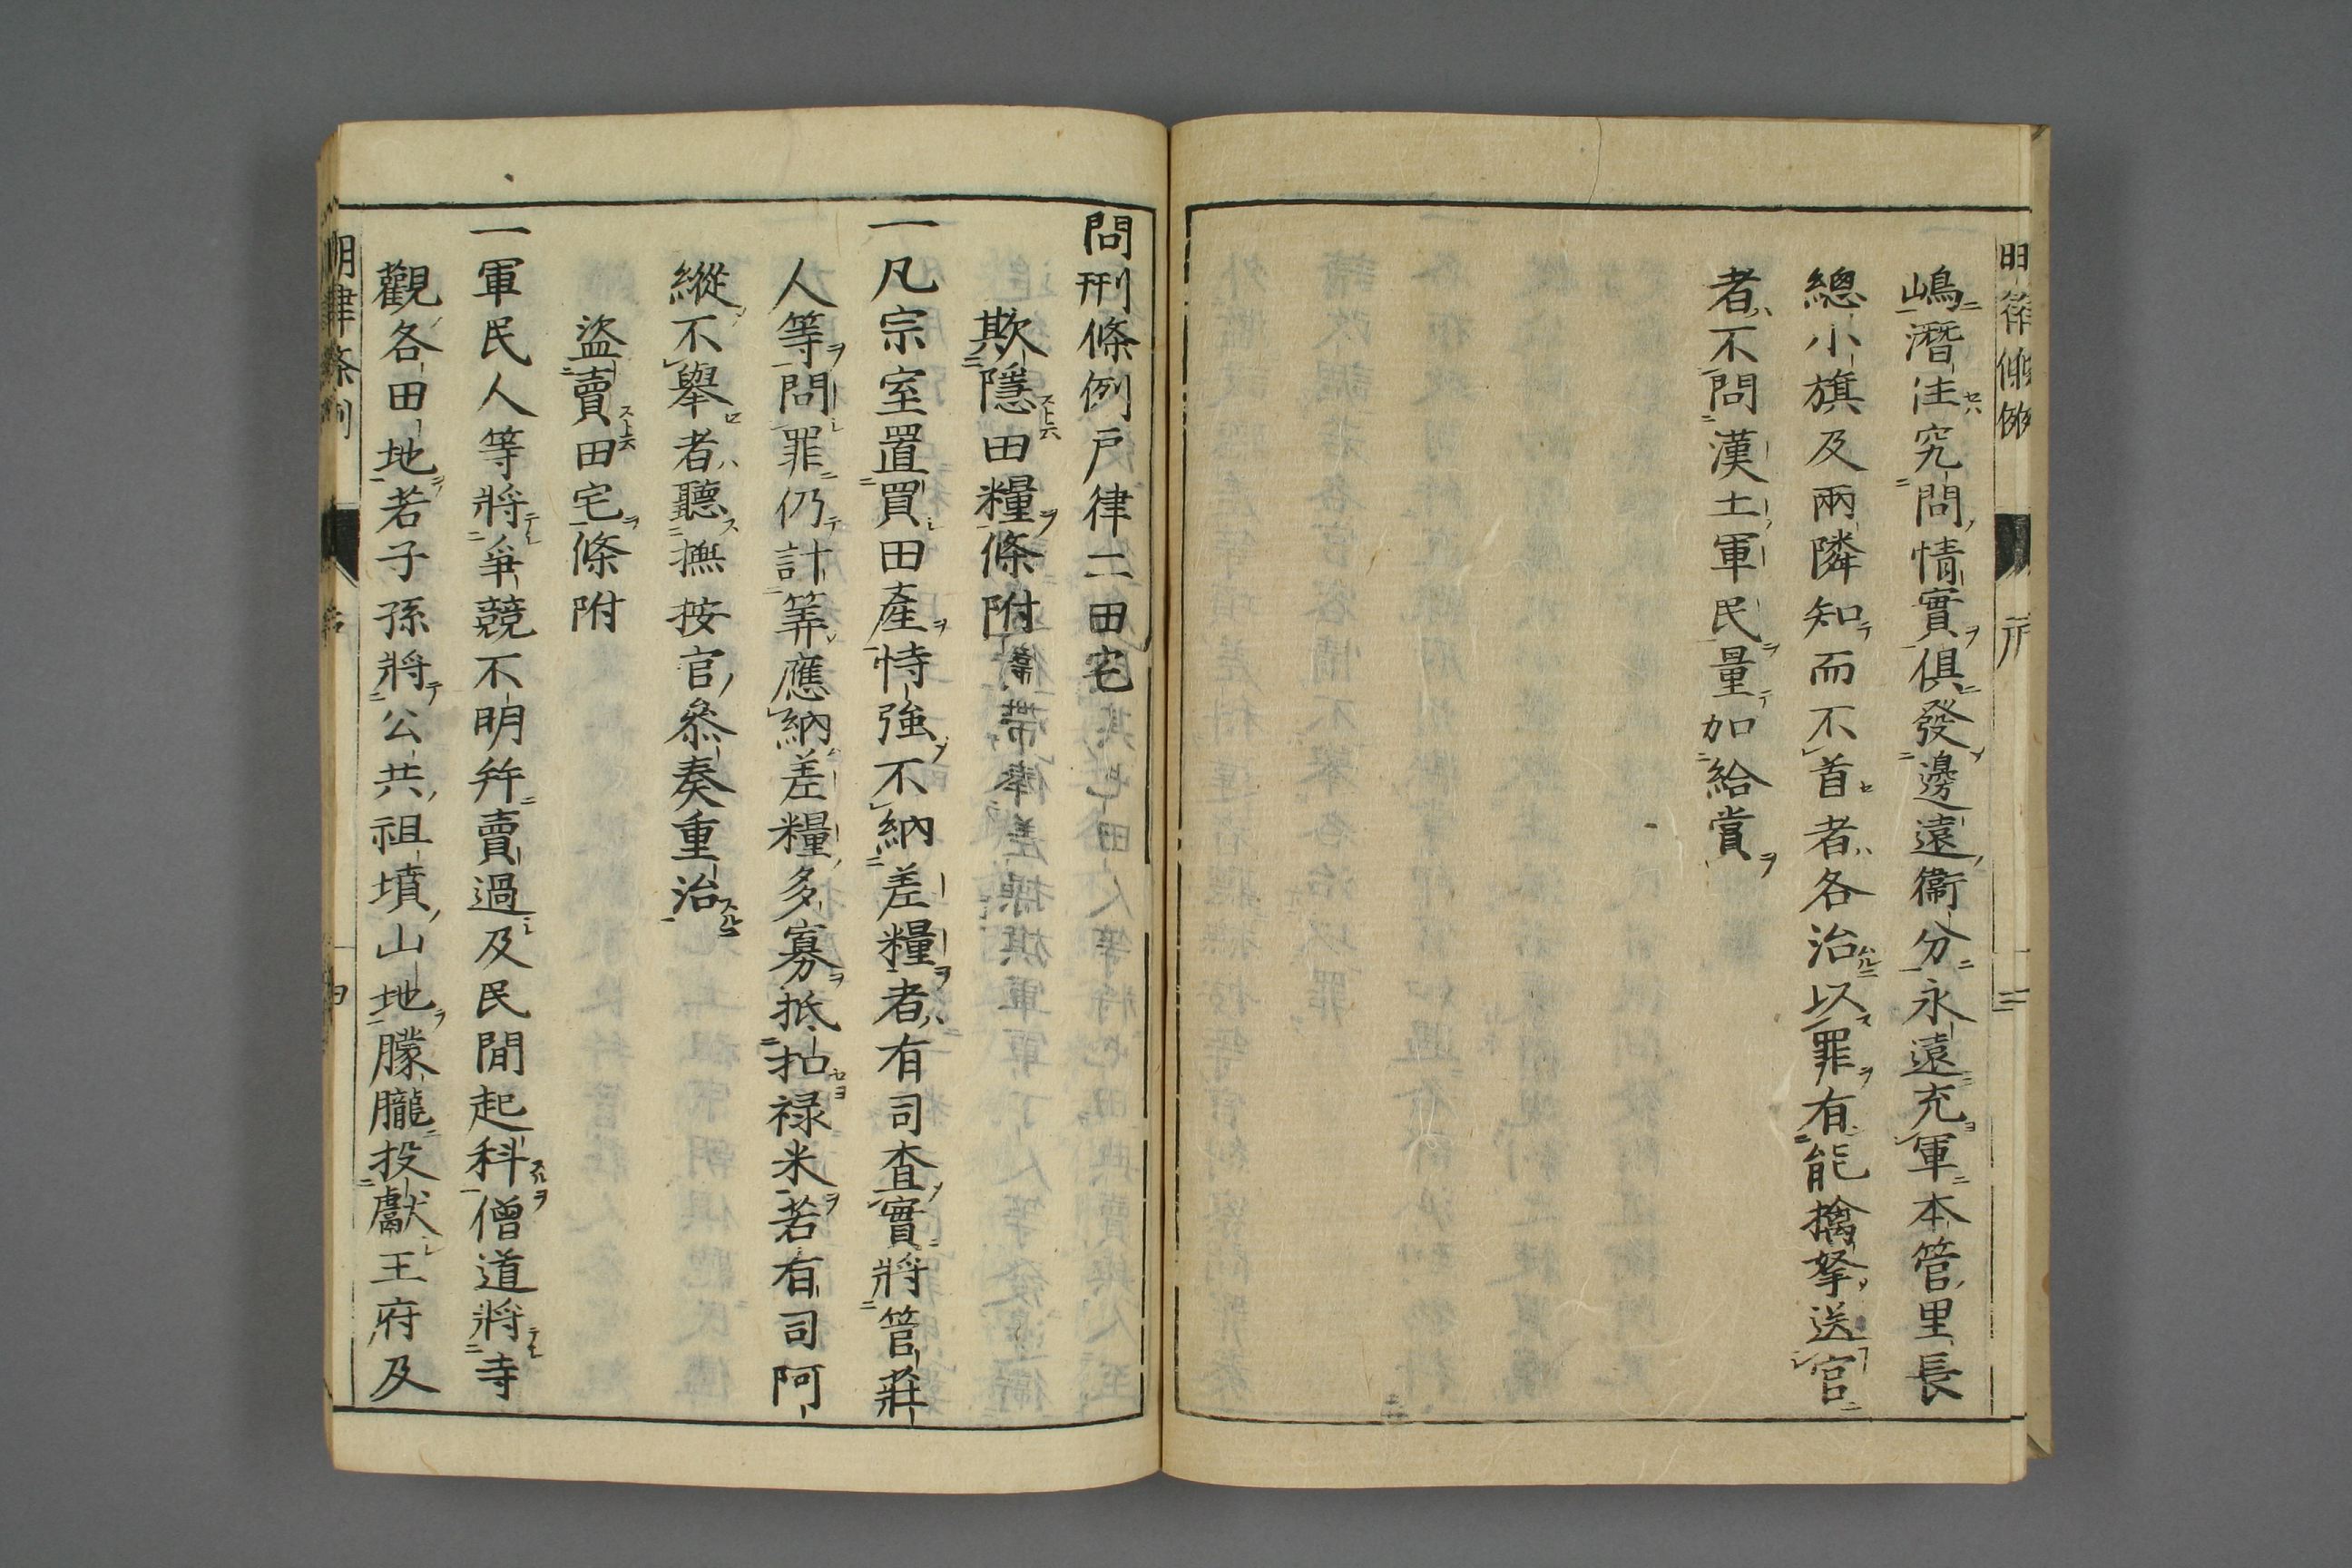 嶋潛住究問情實俱發邊遠衞分永遠充軍本管里長
總小旗及兩隣知而不首者各治以罪有能擒拏送官
者不問漢土軍民量加給賞
問刑條例戸律二田宅
欺隱田糧條附
一凡宗室置買田產恃強不納差糧者有司査實將管莊
人等問罪仍計筭應納差糧多寡抵扣禄米若有司阿
縱不舉者聽撫按官叅奏重治
盜賣田宅條附
一軍民人等將爭競不明幷賣過及民間起科僧道將寺
觀各田地若子孫將公共祖墳山地朦朧投獻王府及
明律條例